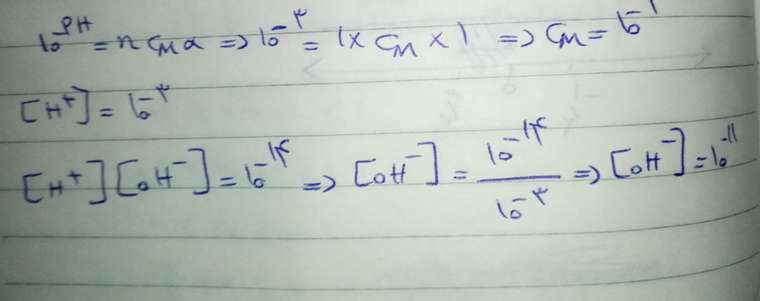 10^PH = n C_M α ⇒ 10^-۳ = 1 × C_M × 1 ⇒ C_M = 10^-
[H^+] = 10^-۳
[H^+][OH^-] = 10^-۱۴ ⇒ [OH^-] = 10^-۱۴ / 10^-۳ ⇒ [OH^-] = 10^-۱۱